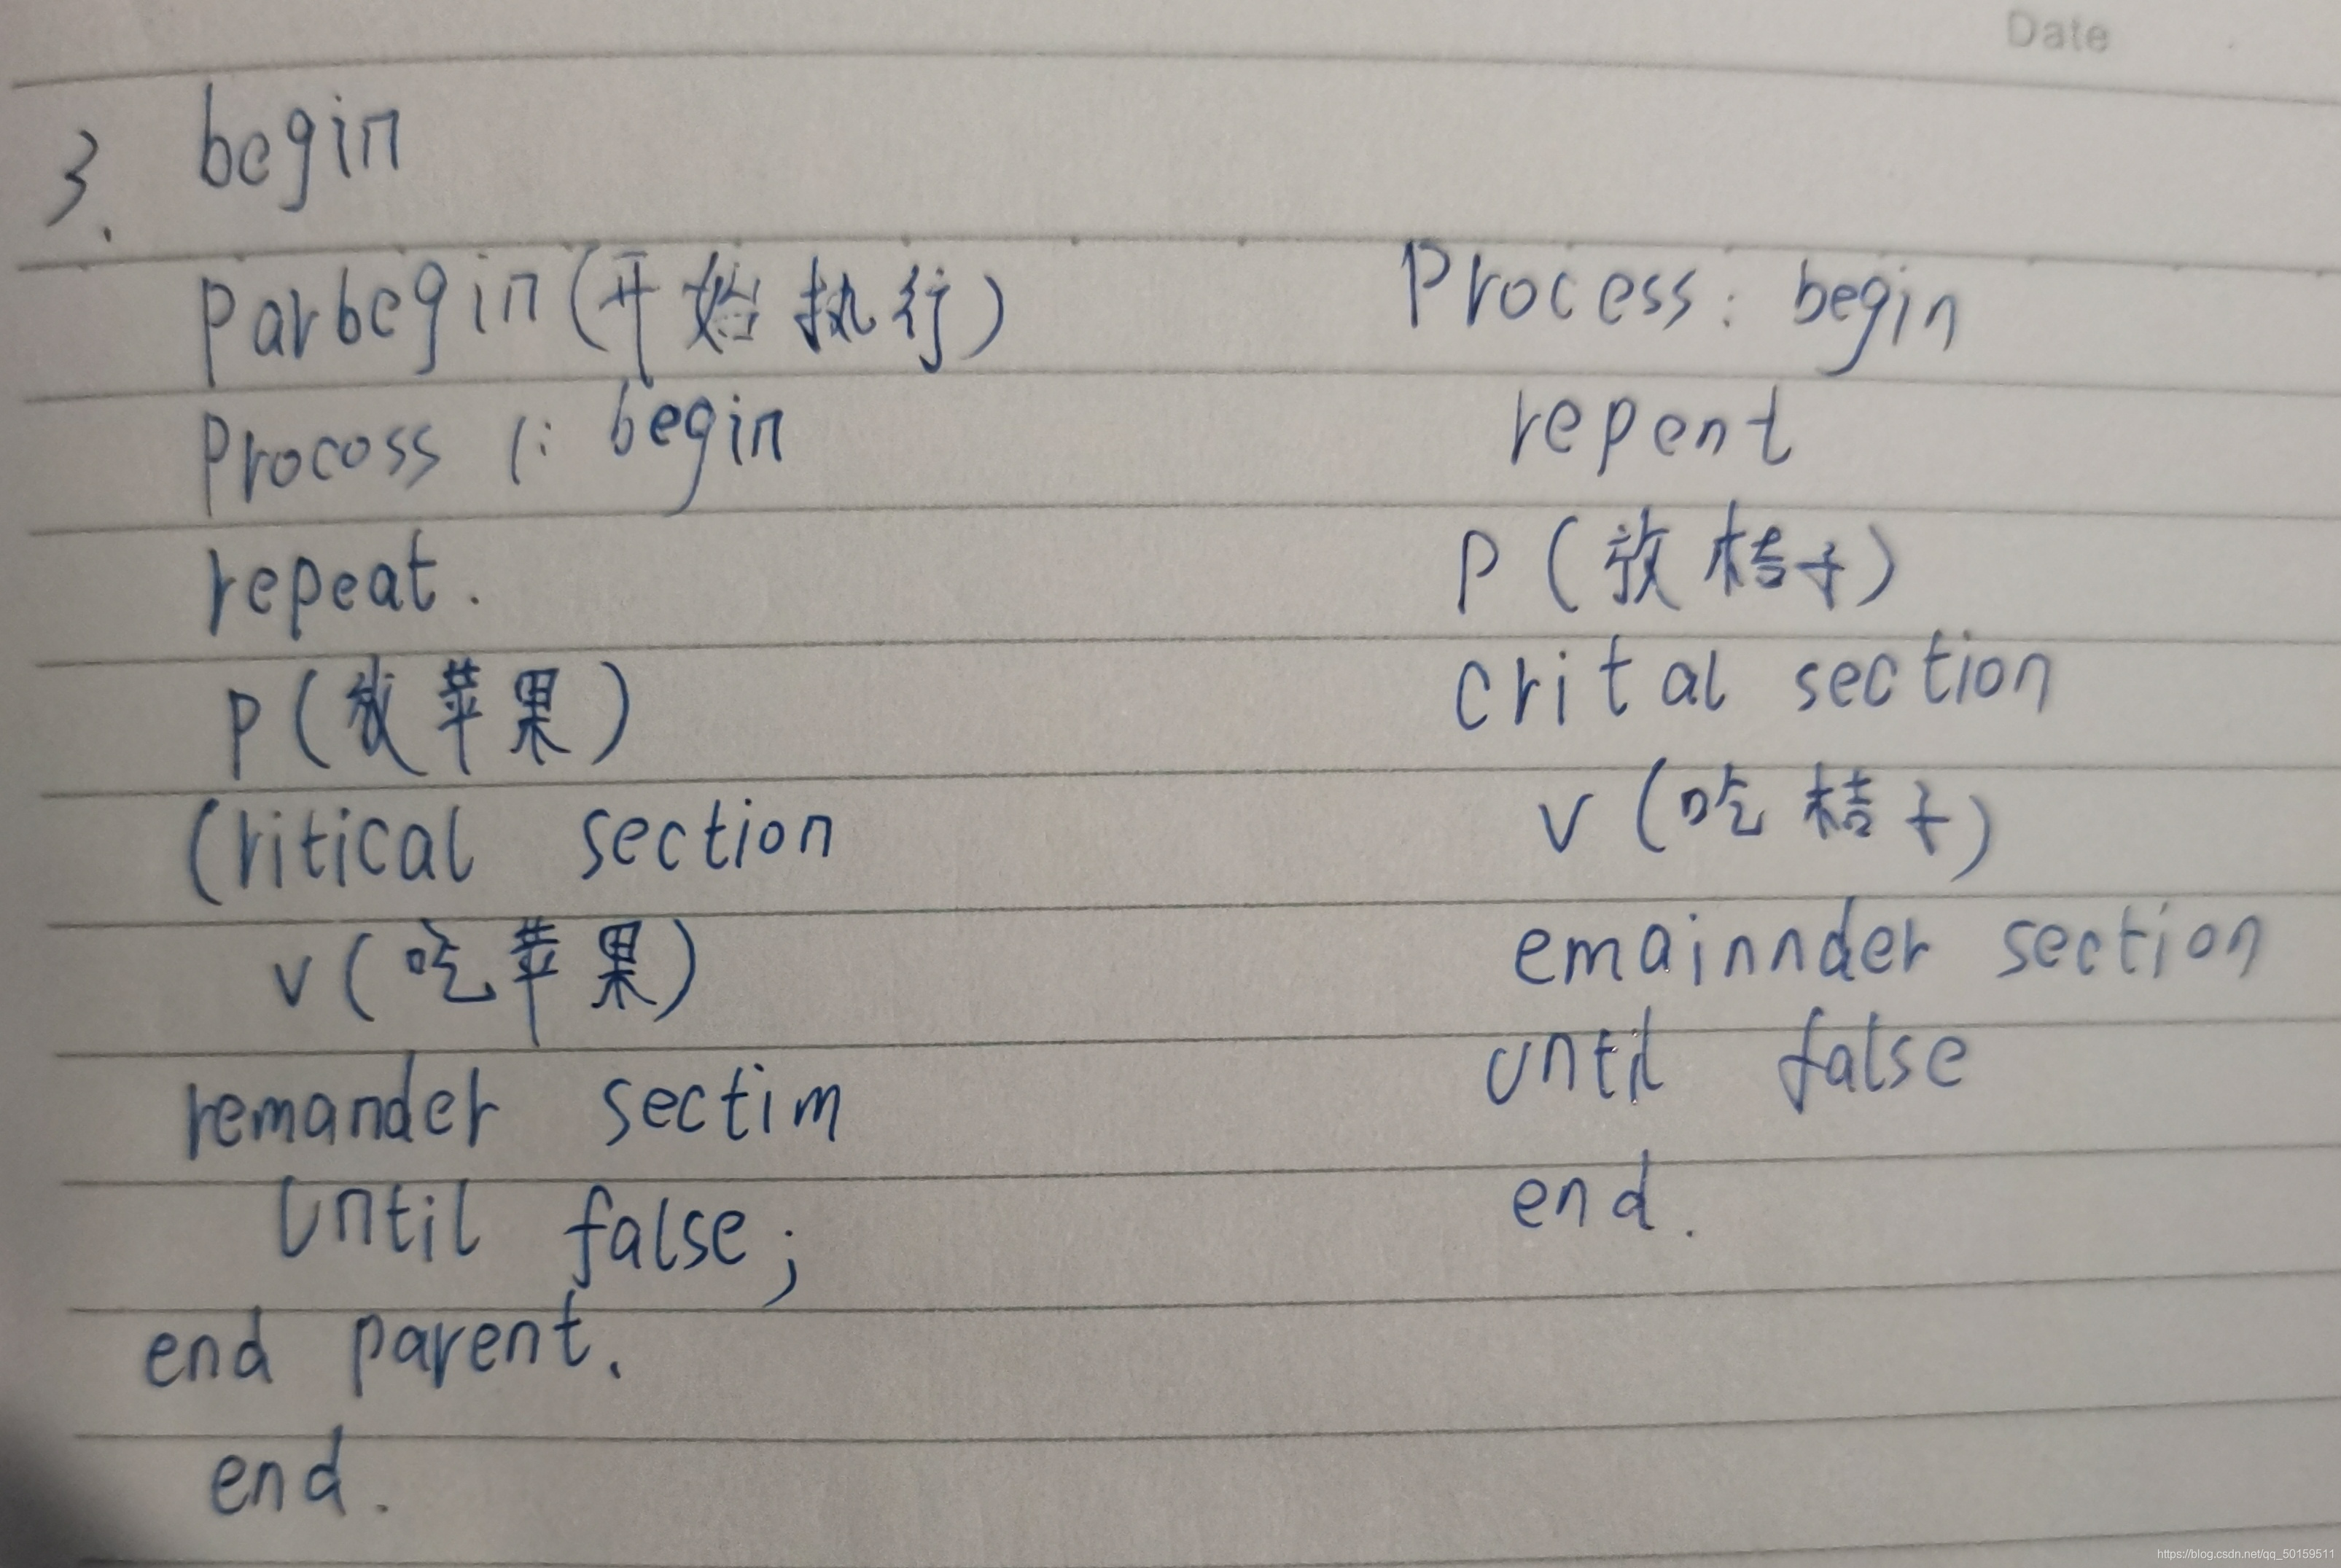 Date
3. begin
parbegin(开始执行)
Procoss 1: begin
repeat.
P(放苹果)
Critical section
V(吃苹果)
remander sectim
Until false;
end parent.
end.
Process: begin
repent
P(放桔子)
Crital section
V(吃桔子)
emainnder section
Until false
end.
https://blog.csdn.net/qq_50159511